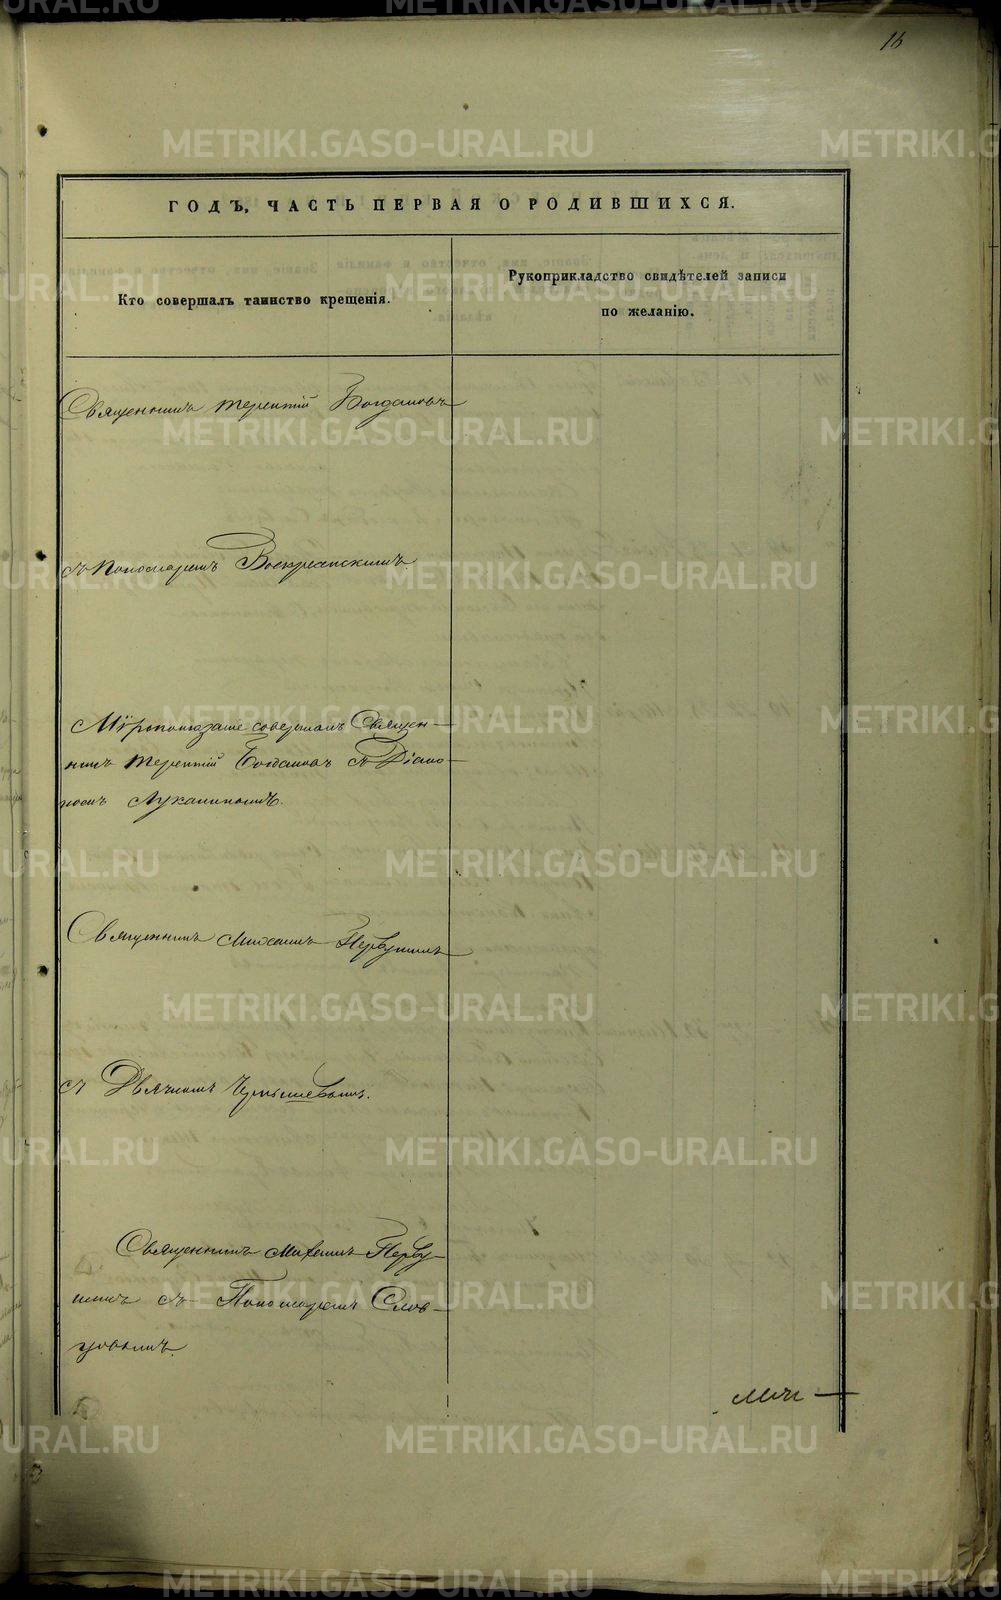 16
ГОДЪ, ЧАСТЬ ПЕРВАЯ О РОДИВШИХСЯ.
Кто совершалъ таинство крещенія.
Рукоприкладство свидѣтелей записи
по желанію.
Священникъ Терентій Богдановъ
съ Пономаремъ Воскресенскимъ.
Мѵропомазаніе совершалъ Священ-
никъ Терентій Богдановъ съ Діако-
номъ Луканинымъ.
Священникъ Михаилъ Первушинъ
съ Дьячкомъ Чернышевымъ.
Священникъ Михаилъ Перву-
шинъ съ Пономаремъ Слов-
цовымъ.
METRIKI.GASO-URAL.RU